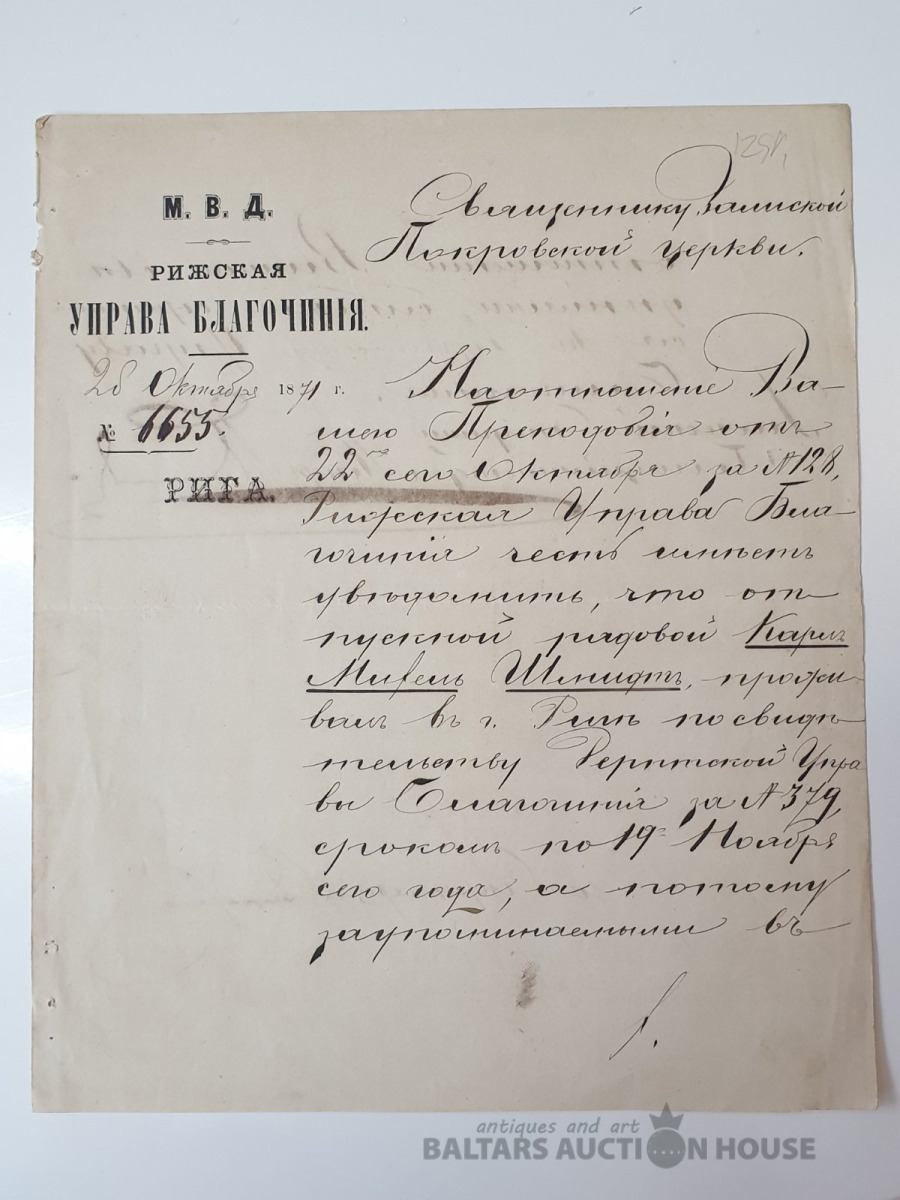 125И,
М. В. Д.
РИЖСКАЯ
УПРАВА БЛАГОЧИНІЯ.
28 Октября 1871 г.
№ 6655.
РИГА.
Священнику Залиской
Покровской церкви.
На отношеніе Ва-
шего Преподобія отъ
22го сего Октября за № 128,
Рижская Управа Бла-
гочинія честь имѣетъ
увѣдомить, что от
пускной рядовой Карлъ
Михель Шмидтъ, прожи-
валъ въ г. Ригѣ по свидѣ
тельству Дерптской Упра
вы Благочинія за № 379,
срокомъ по 19е Ноября
сего года, а потому
заупоминаемыми въ
antiques and art
BALTARS AUCTION HOUSE